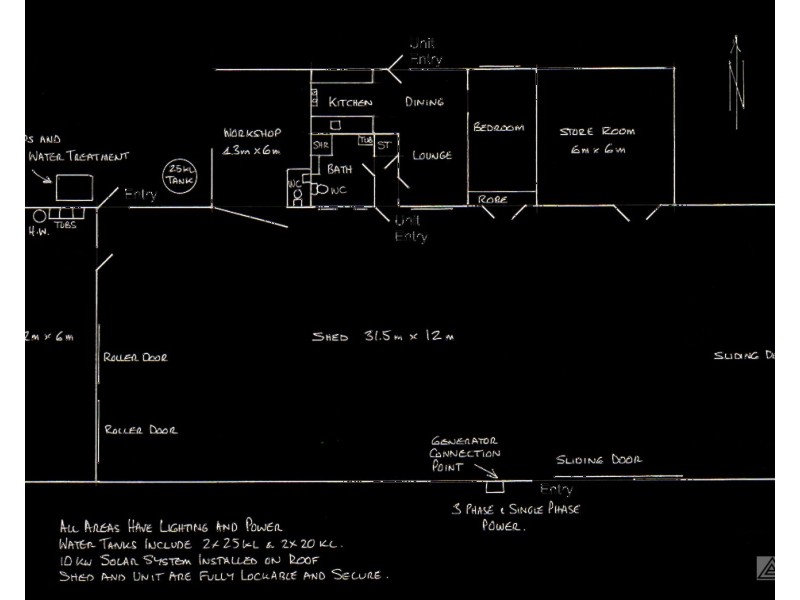 Unit
Entry
KITCHEN
DINING
WORKSHOP
4.3m x 6m
BEDROOM
STORE ROOM
6m x 6m
SHR
TUB
ST
AND
WATER TREATMENT
25KL
TANK
LOUNGE
BATH
WC
WC
Entry
ROBE
TUBS
H.W.
Unit
Entry
2m x 6m
SHED 31.5m x 12m
ROLLER DOOR
SLIDING
ROLLER DOOR
GENERATOR
CONNECTION
POINT
SLIDING DOOR
Entry
3 PHASE & SINGLE PHASE
POWER.
ALL AREAS HAVE LIGHTING AND POWER
WATER TANKS INCLUDE 2x25KL & 2x20KL.
10KW SOLAR SYSTEM INSTALLED ON ROOF
SHED AND UNIT ARE FULLY LOCKABLE AND SECURE.